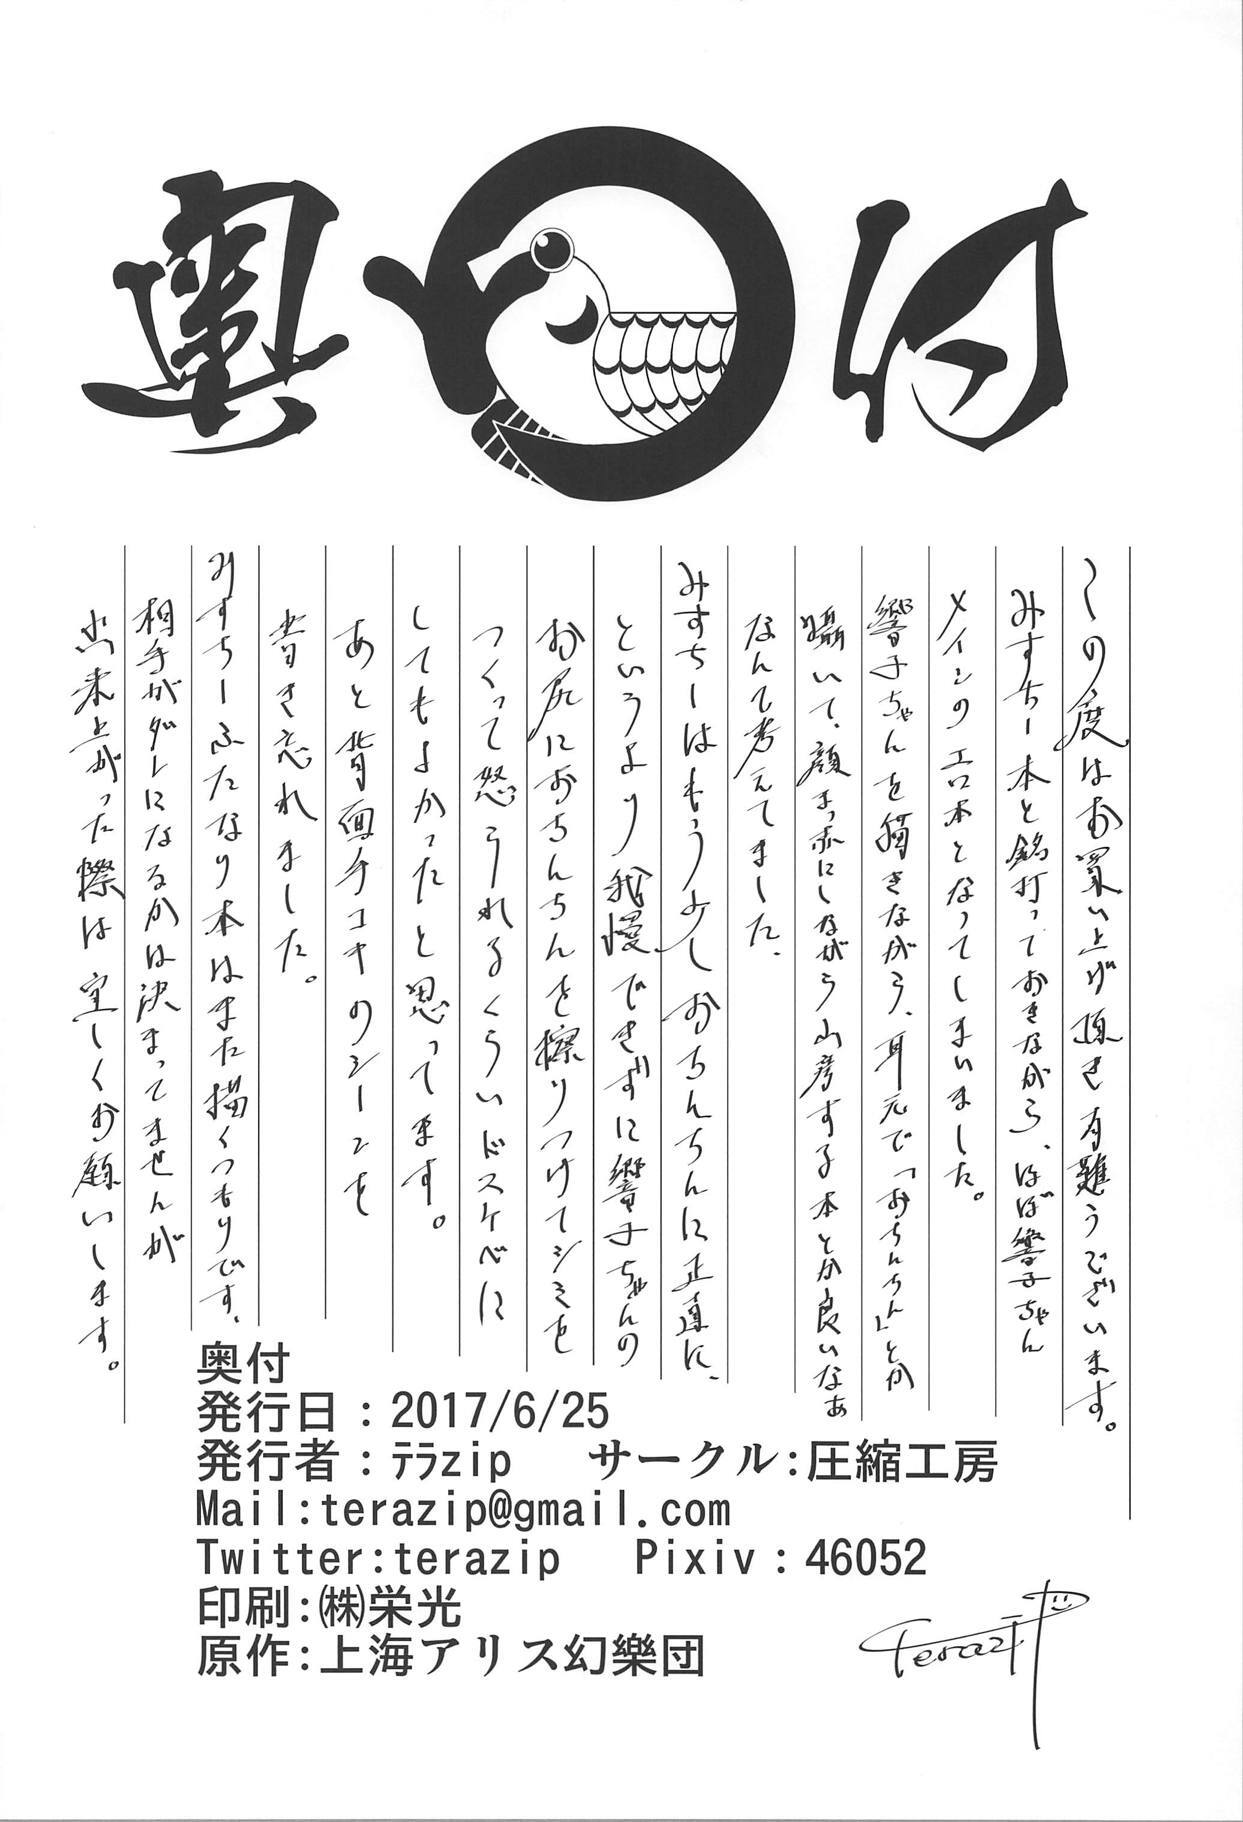 奥付
この度はお買い上げ頂き有難うございます。
みすちー本と銘打っておきながら、ほぼ響子ちゃん
メインのエロ本となってしまいました。
響子ちゃんを描きながら、耳元で「おちんちん」とか
囁いて、顔まっ赤にしながら山彦する本とか良いなぁ
なんて考えてました、
みすちーはもう少しおちんちんに正直に、
というより我慢できずに響子ちゃんの
お尻におちんちんを擦りつけてシミを
つくって怒られるくらいドスケベに
してもよかったと思ってます。
あと背面手コキのシーンを
書き忘れました。
みすちーふたなり本はまた描くつもりです、
相手がダレになるかは決まってませんが
出来上がった際は宜しくお願いします。
奥付
発行日：2017/6/25
発行者：ﾃﾗzip サークル:圧縮工房
Mail:terazip@gmail.com
Twitter:terazip Pixiv：46052
印刷:㈱栄光
原作:上海アリス幻樂団
terazip